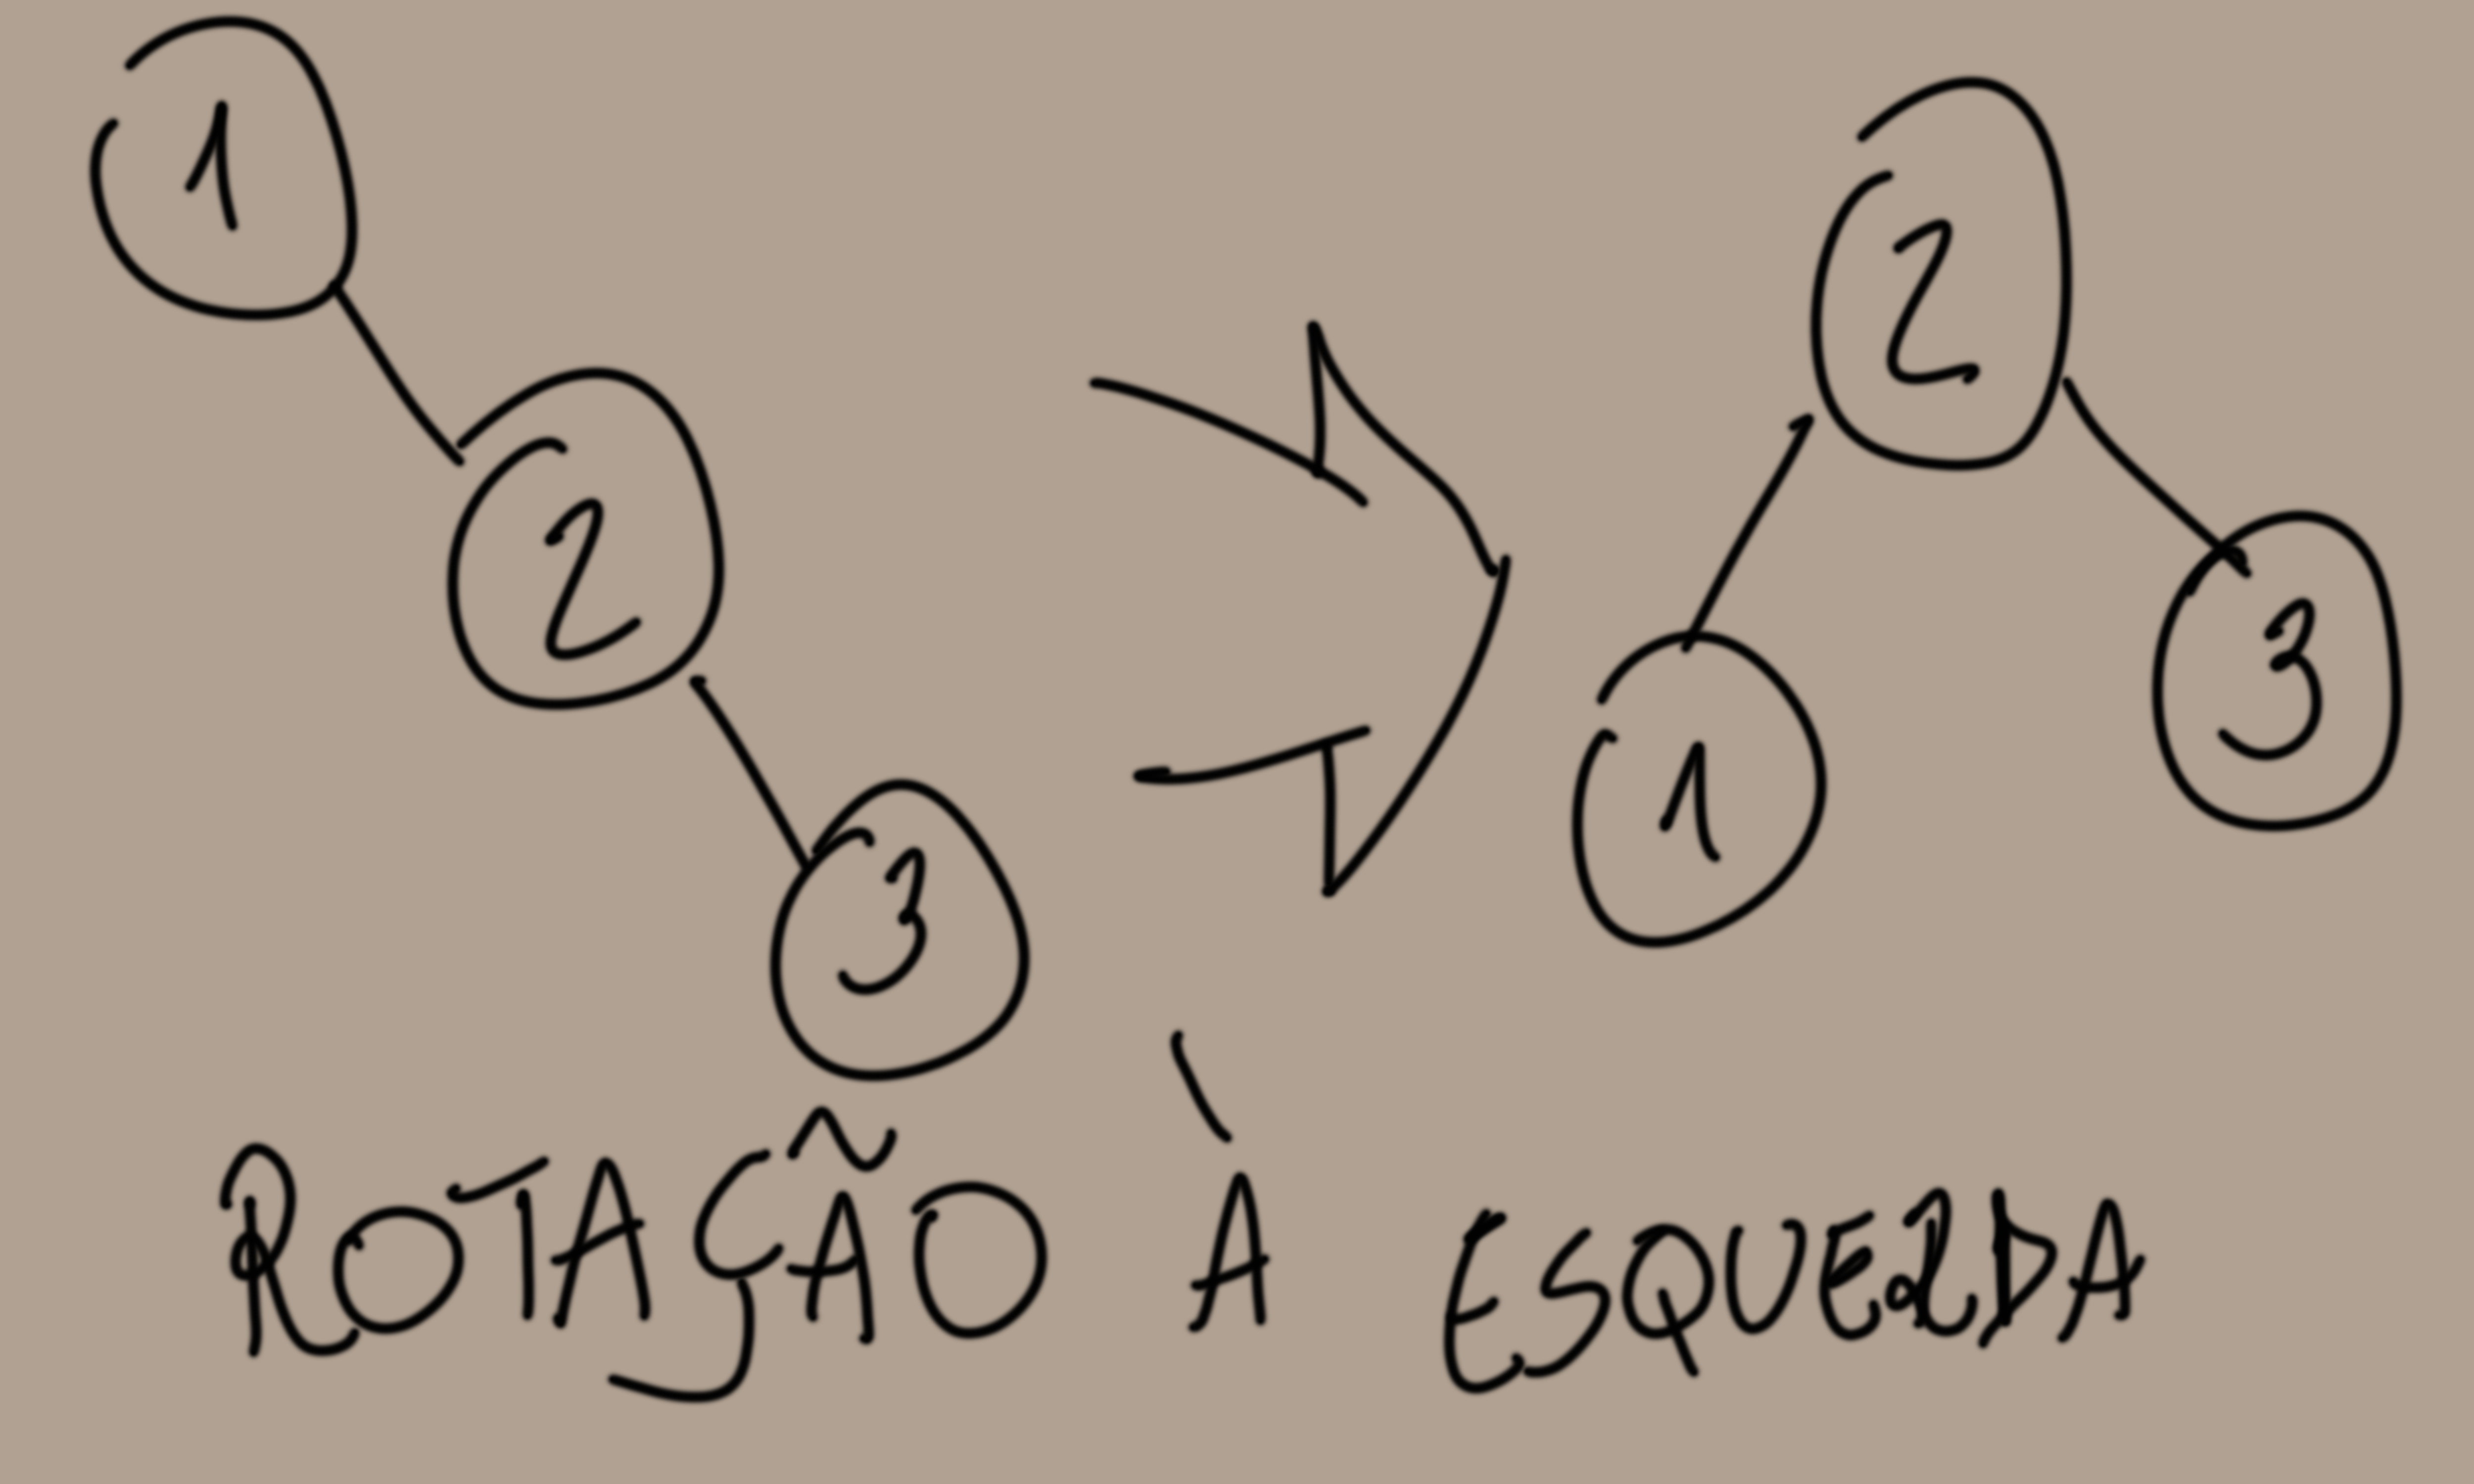 1
2
3
2
1
3
ROTAÇÃO À ESQUERDA